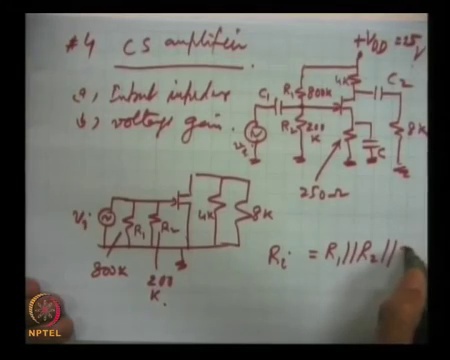 #4 CS amplifier
a, Input impedance
b, voltage gain.
+VDD = 25V
4K
C2
R1 800K
C1
R2 200K
vi
8K
C
250Ω
Vi
R1
R2
4K
8K
800K
200K.
Ri = R1||R2||
NPTEL